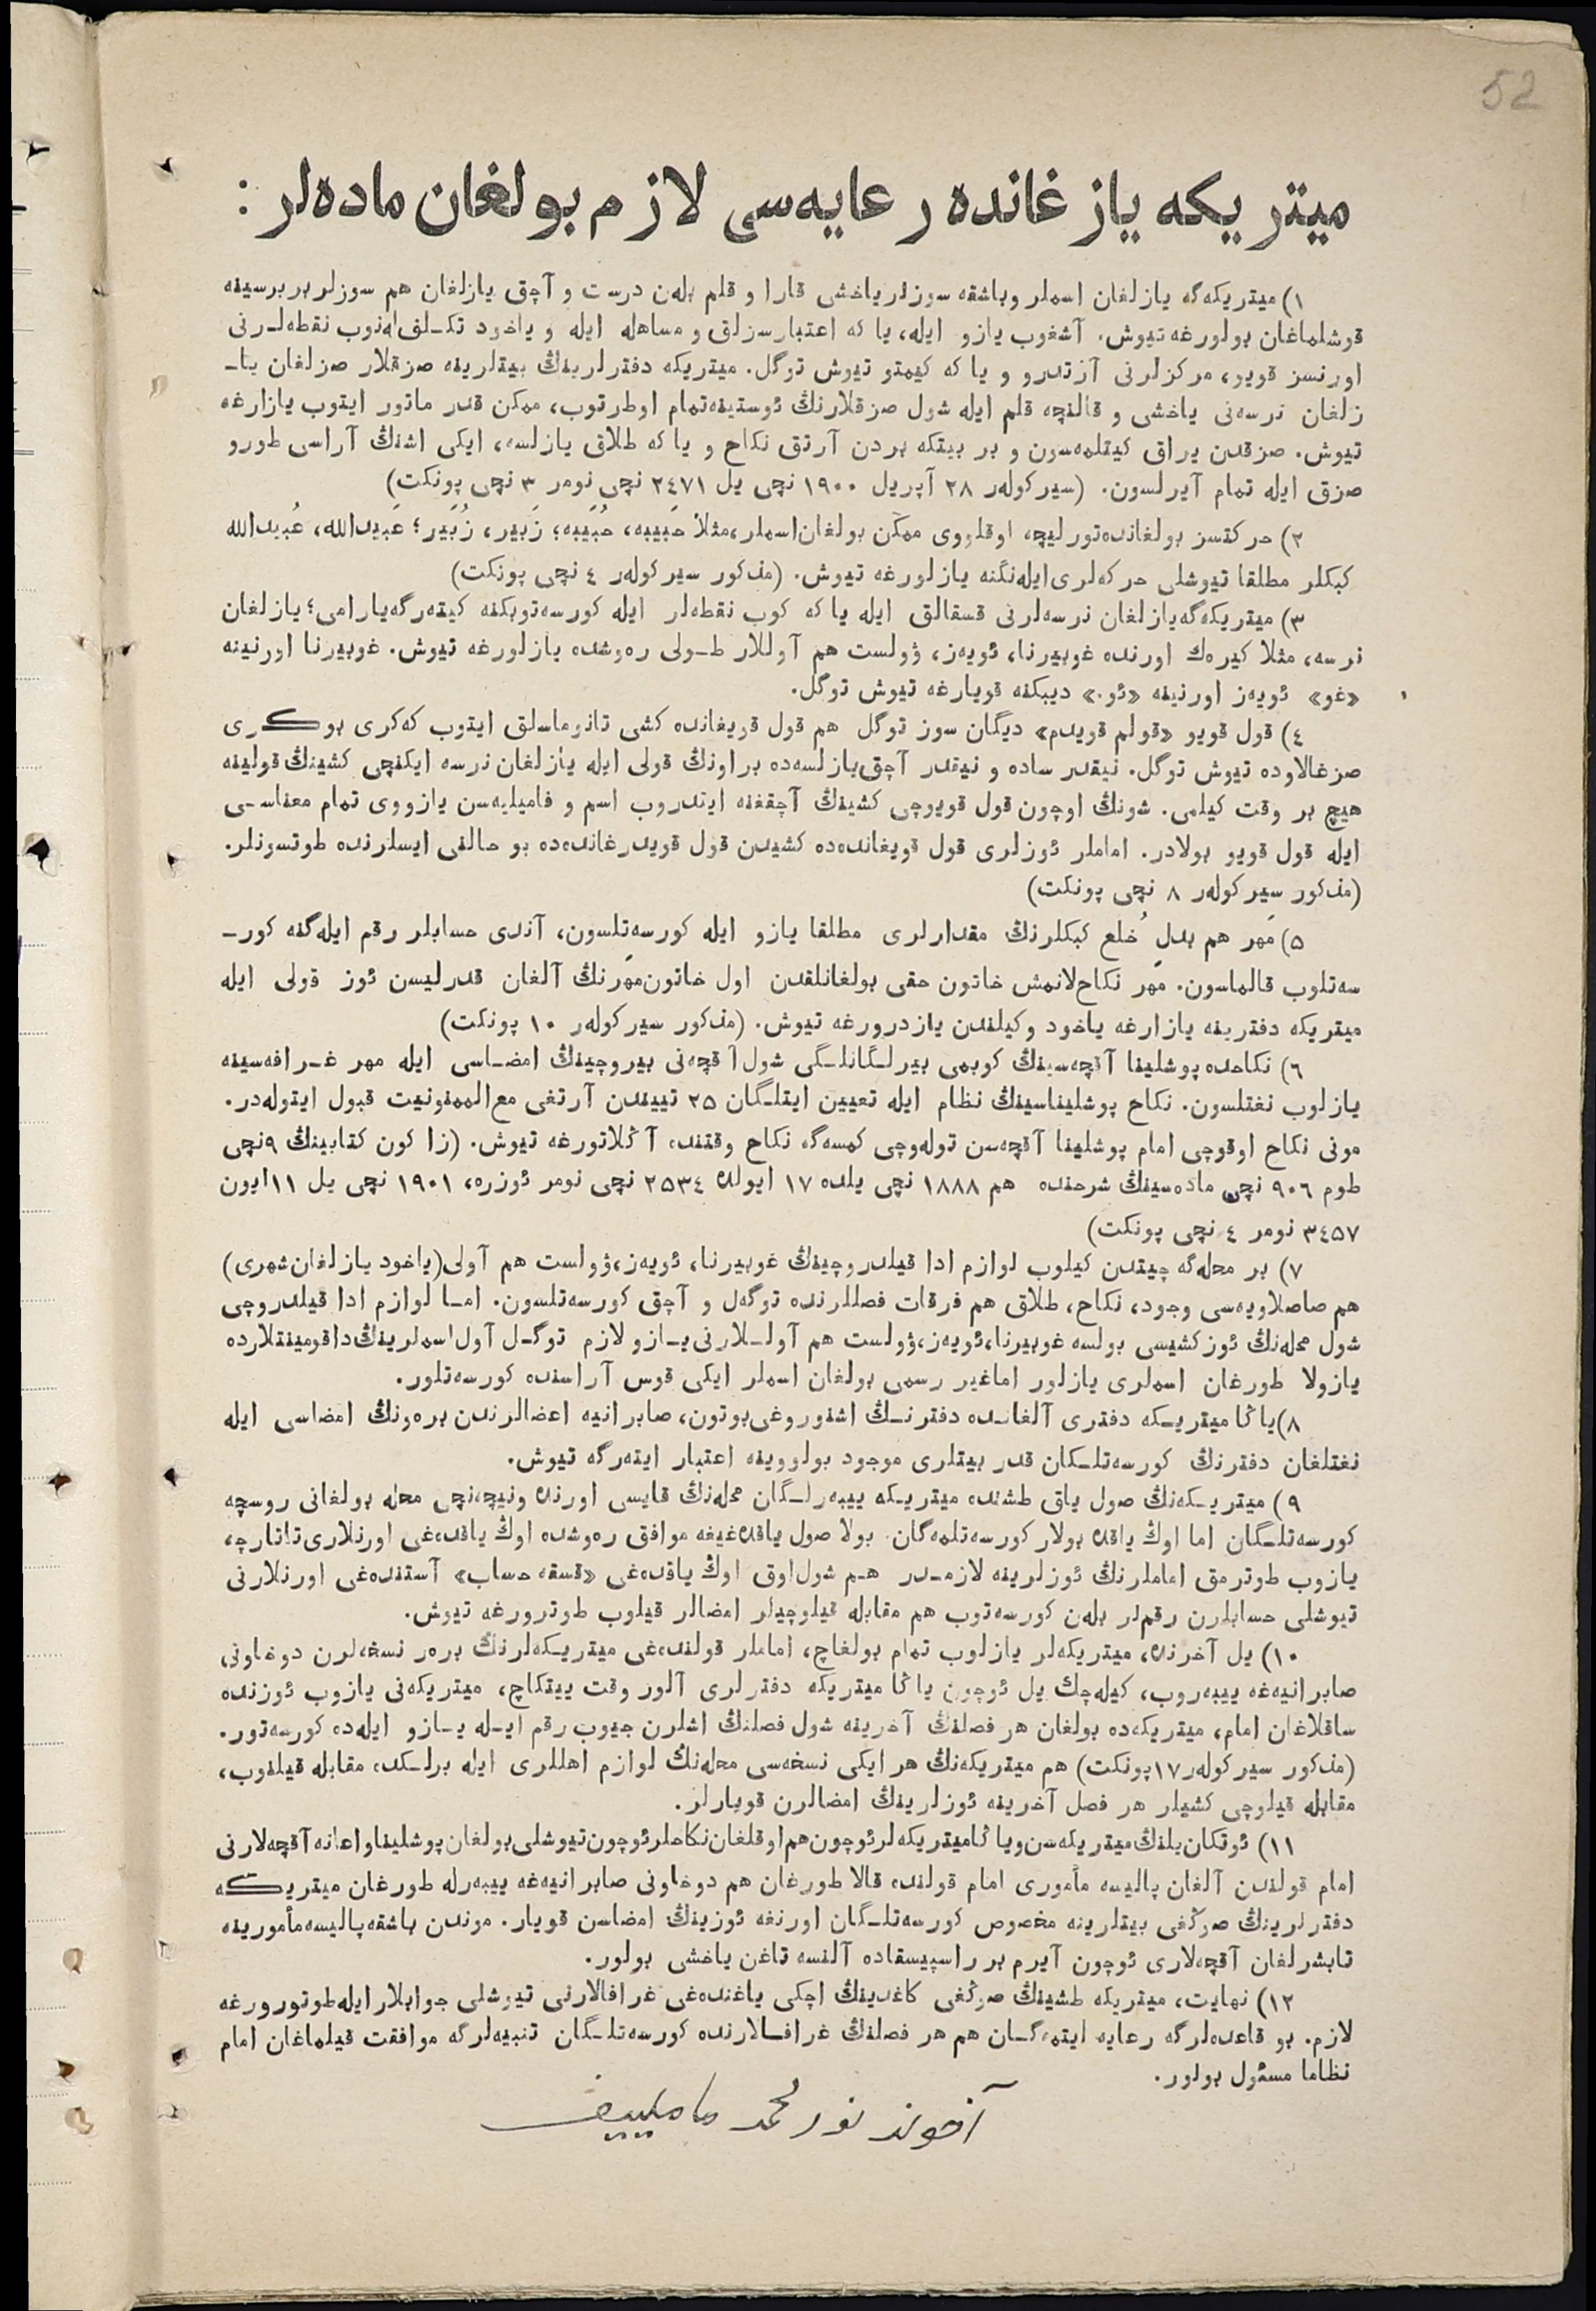 52
ميتريكه يازغانده رعايه‌سى لازم بولغان ماده‌لر:
١) ميتريكه‌گه يازلغان اسملر وباشقه سوزلر ياخشى قارا و قلم بله‌ن درست و آچق يازلغان هم سوزلر بربرسينه
قوشلماغان بولورغه تيوش. آشغوب يازو ايله، يا كه اعتبارسزلق و مساهله ايله و ياخود تكـلف له‌نوب نقطه‌لـرنى
اورنسز قويو، مركزلرنى آزتدرو و يا كه كيمتو تيوش توگل. ميتريكه دفترلرينڭ بيتلرينه صزقلار صزلغان يا-
زلغان نرسه‌نى ياخشى و قالنچه قلم ايله شول صزقلارنڭ ئوستينه تمام اوطرتوب، ممكن قدر ماتور ايتوب يازارغه
تيوش. صزقدن يراق كيتلمه‌سون و بر بيتكه بردن آرتق نكاح و يا كه طلاق يازلسه، ايكى اشنڭ آراسى طورو
صزق ايله تمام آيرلسون. (سيركولەر ٢٨ آپريل ١٩٠٠ نچى يل ٢٤٧١ نچى نومر ٣ نچى پونكت)
٢) حركتسز بولغانده تورليچه اوقلووى ممكن بولغان اسملر، مثلا حَبيبه، حُبَيبه؛ زَبير، زُبَير؛ عَبيدالله، عُبيدالله
كبكلر مطلقا تيوشلى حركه‌لرى ايله‌نگنه يازلورغه تيوش. (مذكور سيركولەر ٤ نچى پونكت)
٣) ميتريكه‌گه يازلغان نرسه‌لرنى قسقالق ايله يا كه كوب نقطه‌لر ايله كورسه‌توبكنه كيته‌رگه يارامى؛ يازلغان
نرسه، مثلا كيره‌ك اورنده غوبيرنا، ئويه‌ز، ۋولست هم آوللار طـولى ره‌وشده يازلورغه تيوش. غوبيرنا اورنينه
«غو» ئويه‌ز اورنينه «ئو.» ديبكنه قويارغه تيوش توگل.
٤) قول قويو «قولم قويدم» ديگان سوز توگل هم قول قويغانده كشى تانوماسلق ايتوب كه‌كرى بوكـرى
صزغالاوده تيوش توگل. نيقدر ساده و نيقدر آچق يازلسه‌ده براونڭ قولى ايله يازلغان نرسه ايكنچى كشينڭ قولينه
هيچ بر وقت كيلمى. شونڭ اوچون قول قويوچى كشينڭ آچقغنه ايتدروب اسم و فاميليه‌سن يازووى تمام معناسـى
ايله قول قويو بولادر. اماملر ئوزلرى قول قويغانده‌ده كشيدن قول قويدرغانده‌ده بو حالنى ايسلرنده طوتسونلر.
(مذكور سيركولەر ٨ نچى پونكت)
٥) مَهر هم بدلِ خُلع كبكلرنڭ مقدارلرى مطلقا يازو ايله كورسه‌تلسون، آندى حسابلر رقم ايله‌گنه كور-
سه‌تلوب قالماسون. مهر نكاحلانمش خاتون حقى بولغانلقدن اول خاتون مهرنڭ آلغان قدرليسن ئوز قولى ايله
ميتريكه دفترينه يازارغه ياخود وكيلندن يازدرورغه تيوش. (مذكور سيركولەر ١٠ پونكت)
٦) نكاحده پوشلينا آقچه‌سينڭ كوبمى بيرلـگانلـگى شول آقچه‌نى بيروچينڭ امضـاسى ايله مهر غـرافه‌سينه
يازلوب نغتلسون. نكاح پوشليناسينڭ نظام ايله تعيين ايتلـگان ٢٥ تييندن آرتغى مع الممنونيت قبول ايتوله‌در.
مونى نكاح اوقوچى امام پوشلينا آقچه‌سن توله‌وچى كمسه‌گه نكاح وقتنده آڭلاتورغه تيوش. (زاكون كتابينڭ ٩نچى
طوم ٩٠٦ نچى ماده‌سينڭ شرحنده هم ١٨٨٨ نچى يلده ١٧ ايولده ٢٥٣٤ نچى نومر ئوزره، ١٩٠١ نچى يل ١١ ايون
٣٤٥٧ نومر ٤ نچى پونكت)
٧) بر محله‌گه چيتدن كيلوب لوازم ادا قيلدروچينڭ غوبيرنا، ئويه‌ز، ۋولست هم آولى (ياخود يازلغان شهرى)
هم صاصلاويه‌سى وجود، نكاح، طلاق هم فرقات فصللرنده توگه‌ل و آچق كورسه‌تلسون. امـا لوازم ادا قيلدروچى
شول محله‌نڭ ئوز كشيسى بولسه غوبيرنا، ئويه‌ز، ۋولست هم آولـلارنى يـازو لازم توگـل آول اسملرينڭ داقومينتلارده
يازولا طورغان اسملرى يازلور اما غير رسمى بولغان اسملر ايكى قوس آراسنده كورسه‌تلور.
٨) ياڭا ميتريـكه دفترى آلغانـده دفترنـڭ اشنوروغى بوتون، صابرانيه اعضالرندن بره‌ونڭ امضاسى ايله
نغتلغان دفترنڭ كورسه‌تلـكان قدر بيتلرى موجود بولووينه اعتبار ايته‌رگه تيوش.
٩) ميتريـكه‌نڭ صول ياق طشنده ميتريـكه ييبه‌رلـگان محله‌نڭ قايسى اورنده ونيچه‌نچى محله بولغانى روسچه
كورسه‌تلـگان اما اوڭ ياقده بولار كورسه‌تلمه‌گان. بولا صول ياقده‌غيغه موافق ره‌وشده اوڭ ياقده‌غى اورنلارى تاتارچه،
يازوب طوترمق اماملرنڭ ئوزلرينه لازمـدر هـم شول اوق اوڭ ياقده‌غى «قسقه حساب» آستنده‌غى اورنلارنى
تيوشلى حسابلرن رقم‌لر بله‌ن كورسه‌توب هم مقابله قيلوچيلر امضالر قيلوب طوترورغه تيوش.
١٠) يل آخرنده، ميتريكه‌لر يازلوب تمام بولغاچ، اماملر قولنده‌غى ميتريـكه‌لرنڭ بره‌ر نسخه‌لرن دوخاونى
صابرانيه‌غه ييبه‌روب، كيله‌چك يل ئوچون ياڭا ميتريكه دفترلرى آلور وقت ييتكاچ، ميتريكه‌نى يازوب ئوزنده
ساقلاغان امام، ميتريكه‌ده بولغان هر فصلنڭ آخرينه شول فصلنڭ اشلرن جيوب رقم ايـله يـازو ايله‌ده كورسه‌تور.
(مذكور سيركولەر ١٧ پونكت) هم ميتريكه‌نڭ هر ايكى نسخه‌سى محله‌نڭ لوازم اهللرى ايله برلـكده مقابله قيلنوب،
مقابله قيلوچى كشيلر هر فصل آخرينه ئوزلرينڭ امضالرن قويارلر.
١١) ئوتكان يلنڭ ميتريكه‌سن وياڭا ميتريكه‌لر ئوچون هم اوقلغان نكاحلر ئوچون تيوشلى بولغان پوشلينا واعانه آقچه‌لارنى
امام قولندن آلغان پاليسه مأمورى امام قولنده قالا طورغان هم دوخاونى صابرانيه‌غه ييبه‌رله طورغان ميتريـكه
دفترلرينڭ صوڭغى بيتلرينه مخصوص كورسه‌تلـگان اورنغه ئوزينڭ امضاسن قويار. موندن باشقه پاليسه مأمورينه
تابشرلغان آقچه‌لارى ئوچون آيرم بر راسپيسقاده آلنسه تاغن ياخشى بولور.
١٢) نهايت، ميتريكه طشينڭ صوڭغى كاغدينڭ اچكى ياغنده‌غى غرافالارنى تيوشلى جوابلار ايله طوتورورغه
لازم. بو قاعده‌لرگه رعايه ايتمه‌گـان هم هر فصلنڭ غرافـالارنده كورسه‌تلـگان تنبيه‌لرگه موافقت قيلماغان امام
نظاما مسئول بولور.
آخوند نورمحمد مامليیف